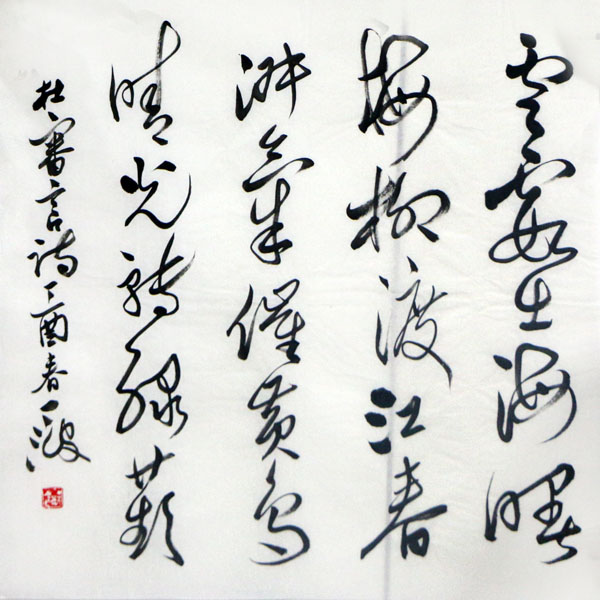 雲霞出海曙
梅柳渡江春
淑氣催黃鳥
晴光轉綠蘋
杜審言詩丁酉春一